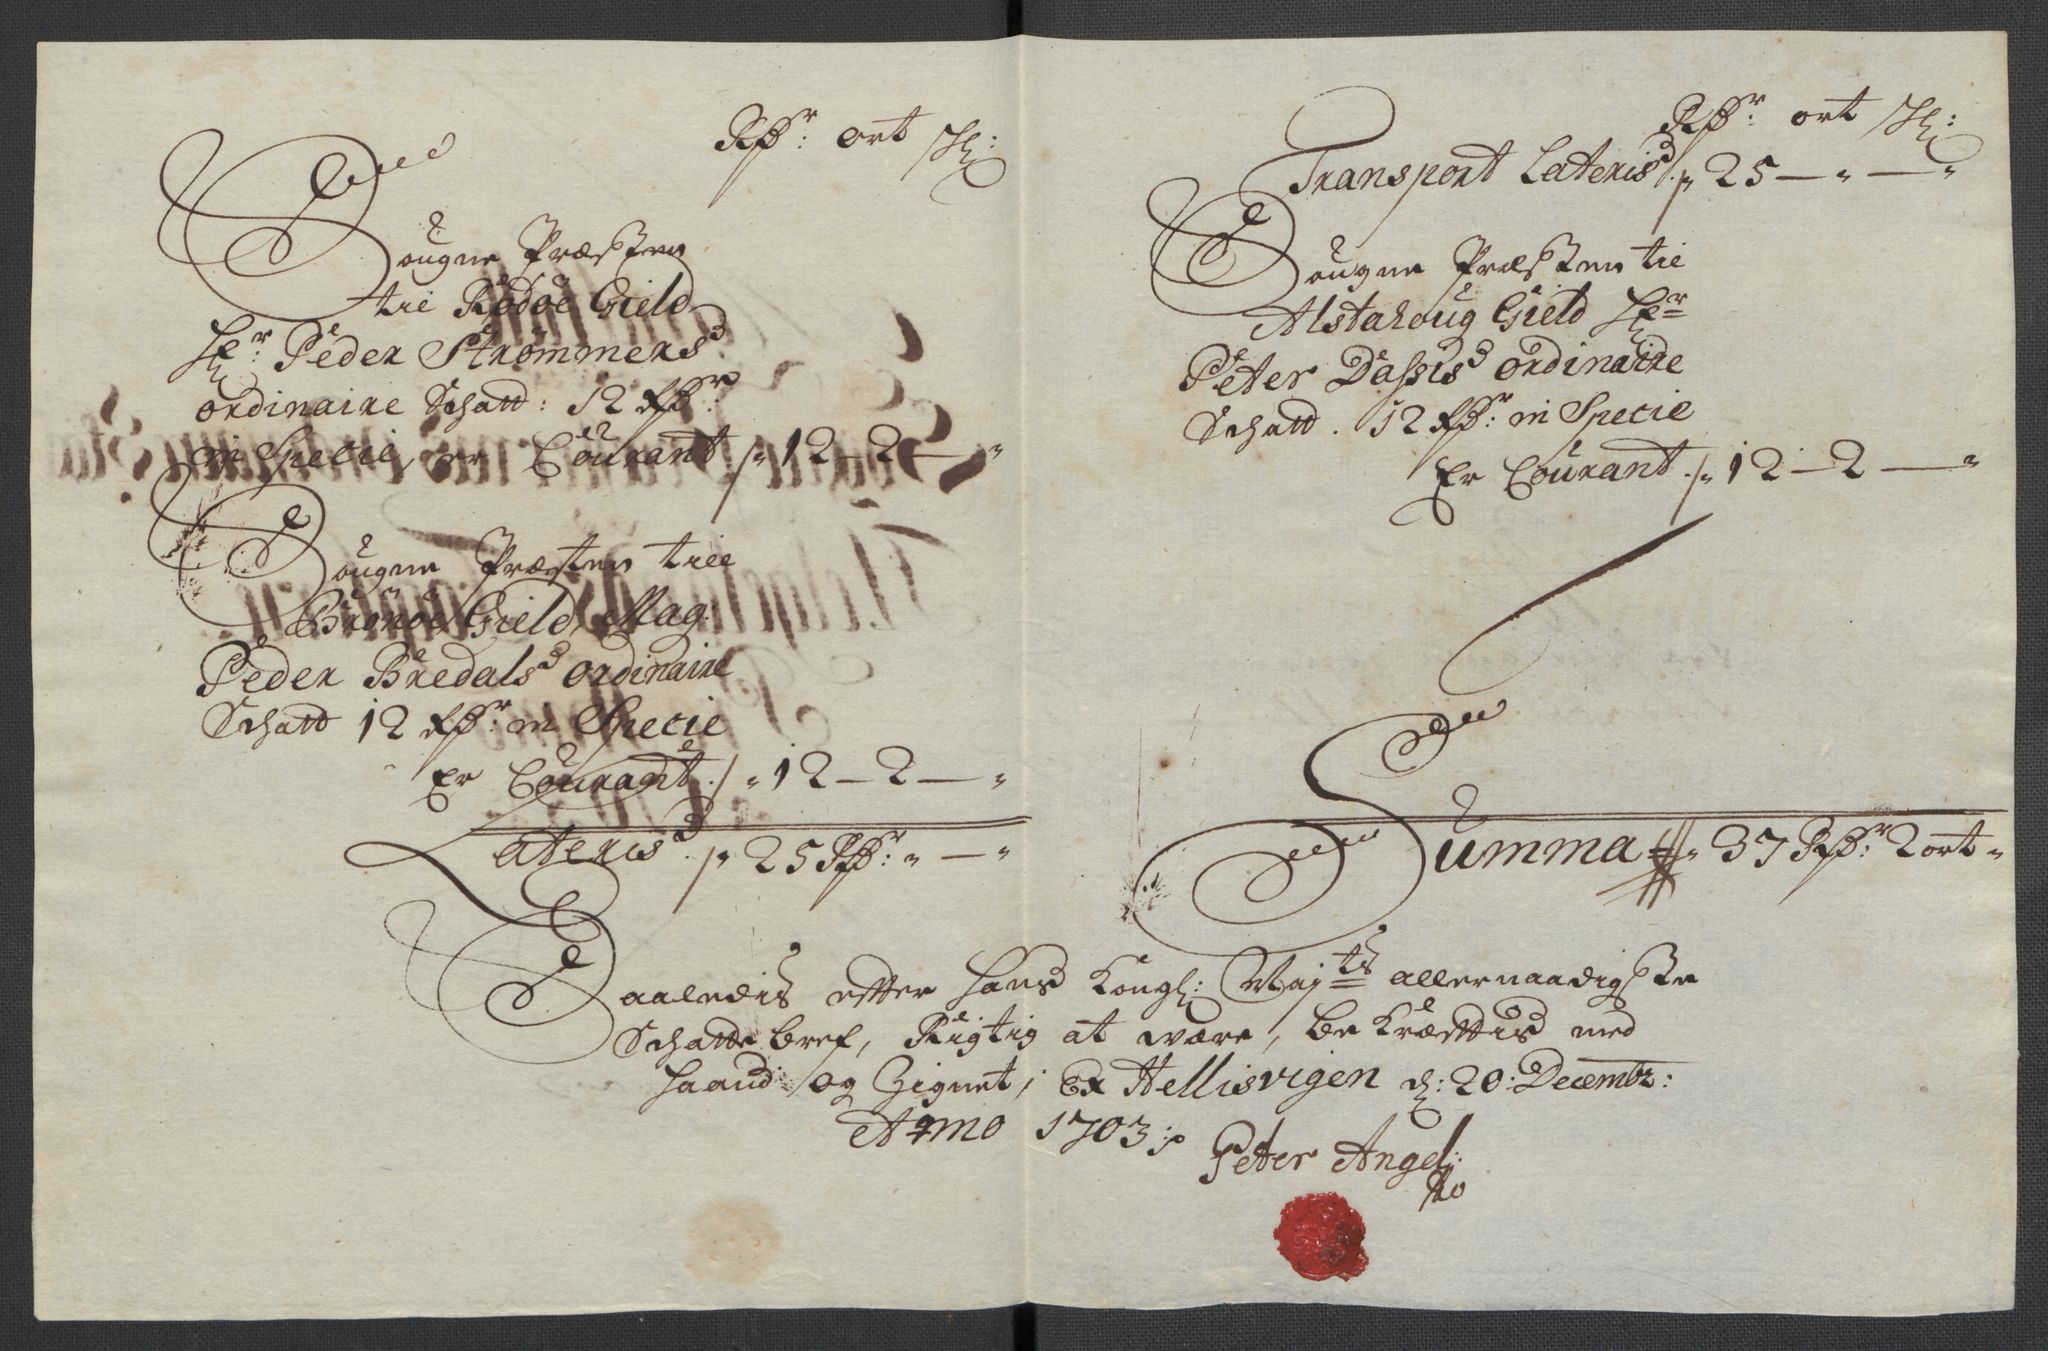 Rdr: ort Sk:
Sougne Præsten
til Rödöe Gield
Hr: Peder Strømmers
ordinaire Schatt: 12 Rdr:
in Specie, er Courant ./. 12 - 2 - "
Sougne Præsten till
Brönöe Gield, Mag:
Peder Bredals ordinaire
Schatt 12 Rdr: in Specie
Er Courant ./. 12 - 2 - "
Lateris ./. 25 Rdr: " - "
Rdr: ort Sk:
Transport Lateris ./. 25 - " - "
Sougne Præsten til
Alstahoug Gield Hr
Peter Dassis ordinaire
Schatt . 12 Rdr: in Specie
Er Courant ./. 12 - 2 - "
Summa 37 Rdr: 2 ort "
Saaledis efter Hans Kongl: Majts allernaadigste
Schatte bref, Rigtig at være, bekræftis med
haand og Zignet; Ex Hellisvigen d: 20: Decembr:
Anno 1703:
Peter Angel: